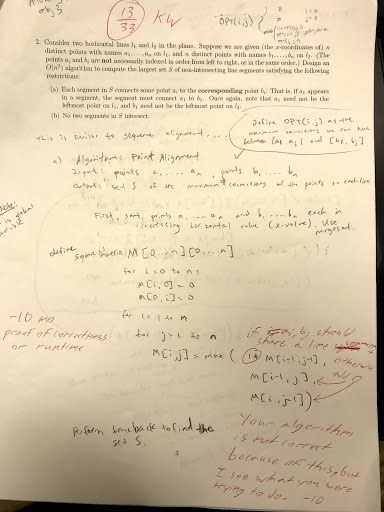 obj S
13/33
KW
OPT(i,j)
2. Consider two horizontal lines l₁ and l₂ in the plane. Suppose we are given (the x-coordinates of) n
distinct points with names a₁, . . . , aₙ on l₁, and n distinct points with names b₁, . . . , bₙ on l₂. (The
points aᵢ and bᵢ are not necessarily indexed in order from left to right, or in the same order.) Design an
O(n²) algorithm to compute the largest set S of non-intersecting line segments satisfying the following
restrictions:
(a) Each segment in S connects some point aᵢ to the corresponding point bᵢ. That is, if a₁ appears
in a segment, the segment must connect a₁ to b₁. Once again, note that a₁ need not be the
leftmost point on l₁, and b₁ need not be the leftmost point on l₂.
(b) No two segments in S intersect.
Define OPT(i,j) as the
maximum connections we can have
between
This is similar to sequence alignment....
a) Algorithm: Point Alignment
Input: points a, ... aₙ, points b, ... bₙ
Output: set S of the maximum connections of the points on each line
First, sort points a, ... aₙ and b, ... bₙ each in
increasing horizontal value (x-value). Use
mergesort.
Note:
is global
variable
define
M[0...n][0...n]
for i=0 to n:
M[i,0]=0
M[0,i]=0
for i=1 to n
for j=1 to n
M[i,j] = max ( 1+ M[i-1,j-1],
M[i-1,j],
M[i,j-1])
-10 no
proof of correctness
or runtime
if ai, bj should
share a line segment
otherwise
add 0
Perform traceback to find the
set S.
Your algorithm
is not correct
because of this, but
I see what you were
trying to do. -10